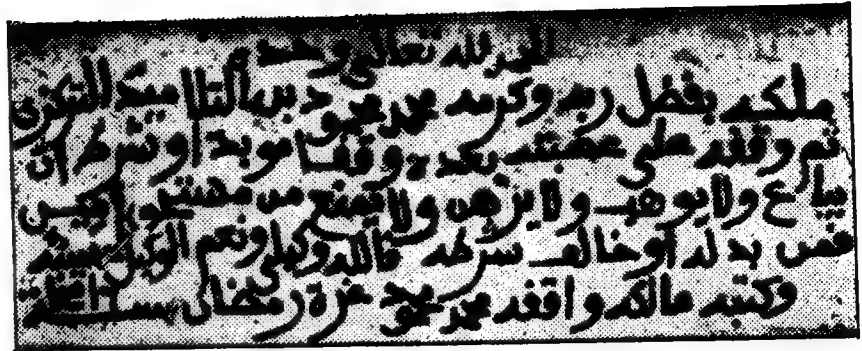 الحمد لله تعالى وحده
ملكه بفضل ربه وكرمه محمد محمود بن التلاميد التركزي
ثم وقفه على عصبته بعده وقفا موبدا وشرط ان
يباع ولا يوهب ولا يرهن ولا يمنع من مستحق
فمن بدله او خالف شرطه فالله وكيلي ونعم الوكيل
وكتبه مالكه واقفه محمد محمود غرة رمضان سنة